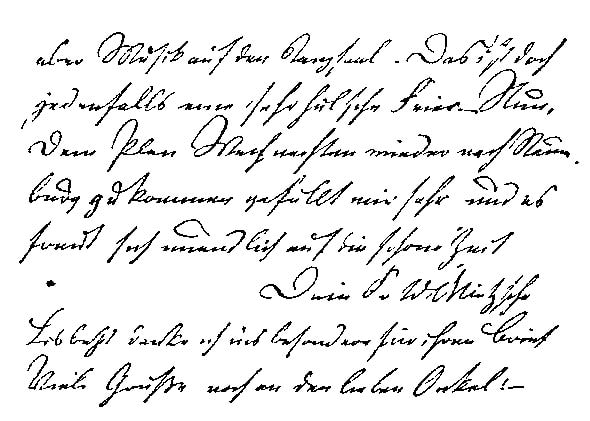 aber Musik auf den Tanzsaal. Das ist doch
jedenfalls eine sehr hübsche Feier. Nun,
Dein Plan Weihnachten wieder nach Naum-
burg zu kommen gefällt mir sehr und es
freut sich unendlich auf die schöne Zeit
Dein Fr W Nietzsche
danke ich besonders für ihren Brief
Viele Grüße noch an den lieben Onkel!—